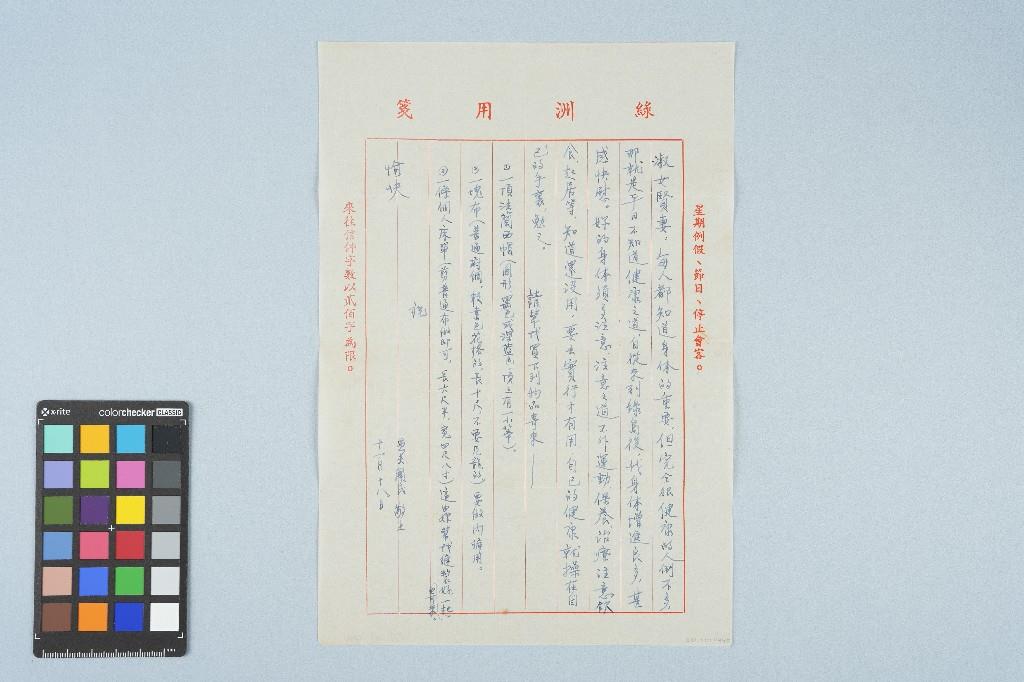 綠洲用箋
星期例假、節日、停止會客。
淑女賢妻，每人都知道身体的重要，但完全很健康的人倒不多
那就是平日不知道健康之道，自從來到綠島後，我身体增進良多，甚
感快慰。好的身体須多注意，注意之道不外運動保養治療注意飲
食、起居等，知道還沒用，要去實行才有用，自己的健康就操在自
己的手裏，勉之。
請幫我買下列物品寄來——
一頂法蘭西帽（圓形黑色或深藍色，頂上有一小蒂）。
一塊布（普通府綢，較素色花格的，長十尺不要尼龍的）要做內褲用。
③一條個人床單（剪普通布做即可，長六尺半，寬四尺八寸）這由妳幫我縫製好一起
寄來。
祝
愉快
敬上
十一月十八日
來往信件字數以貳佰字為限。
x-rite
colorchecker CLASSIC